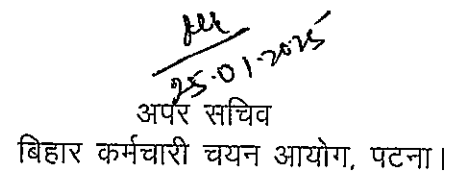 25-01-2025
अपर सचिव
बिहार कर्मचारी चयन आयोग, पटना।